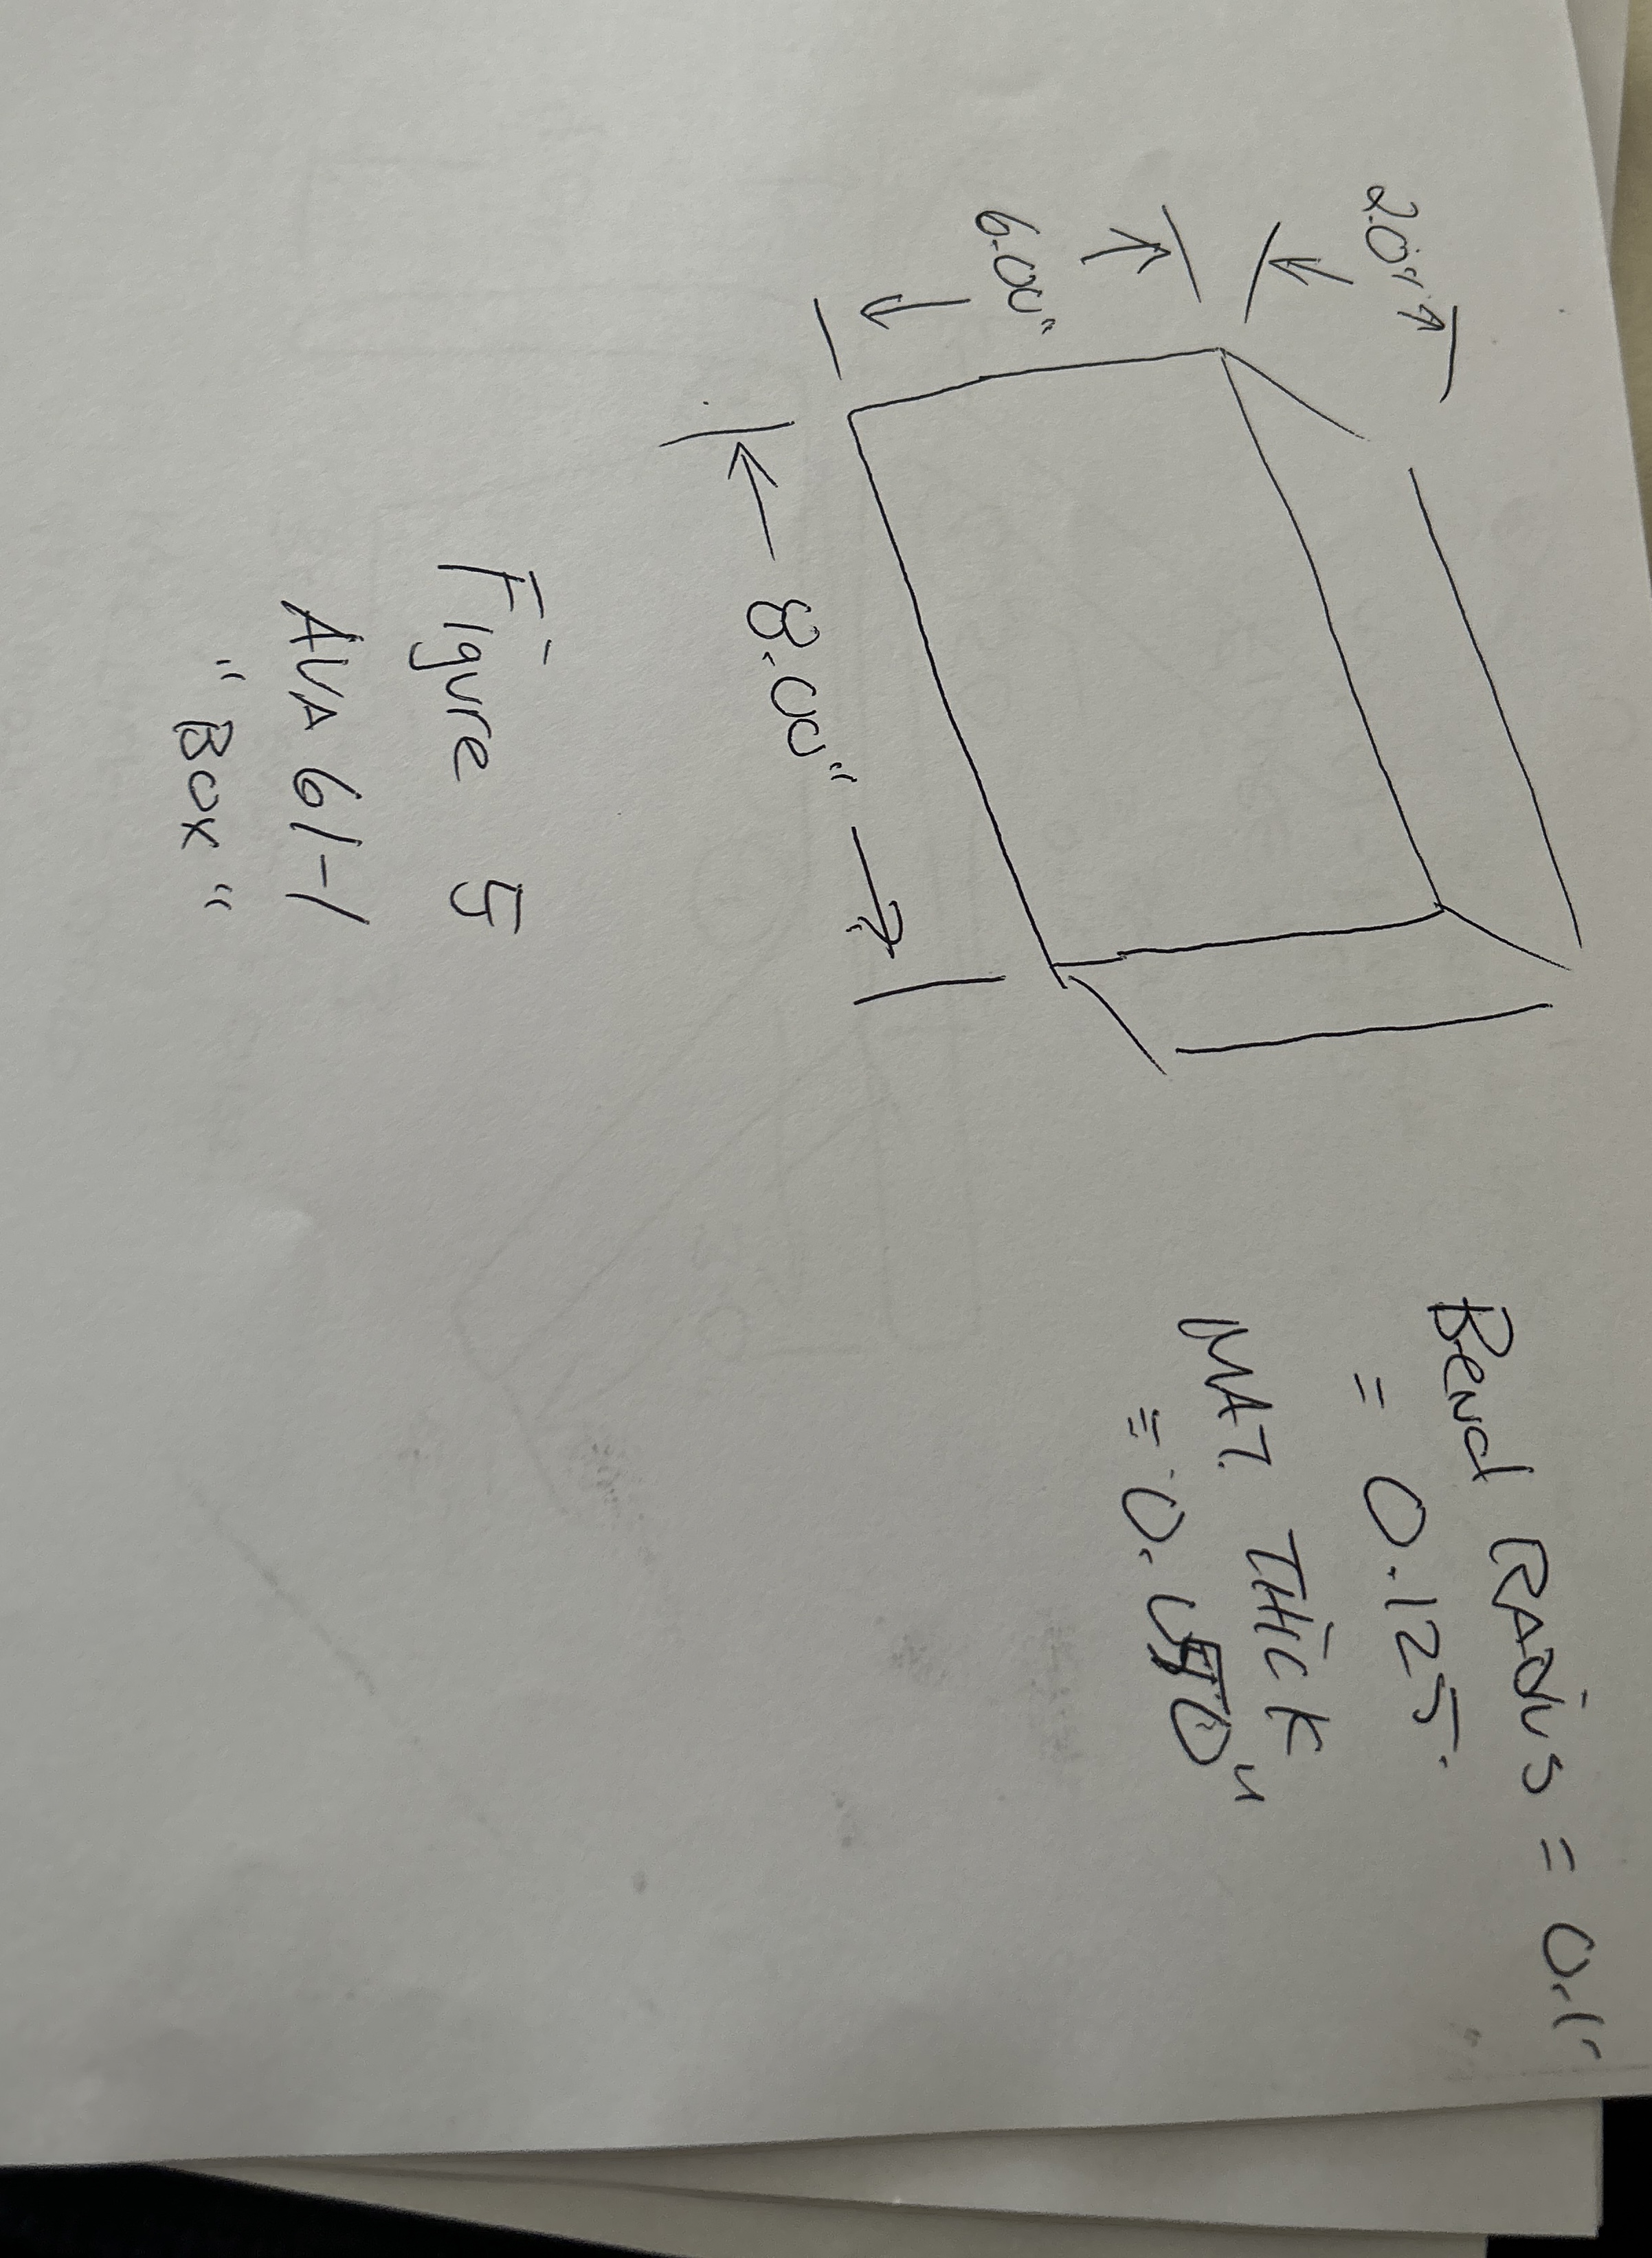 2.0"
6.00"
8.00"
Figure 5
AVA 61-1
"Box"
Bend RADiUS = 0.1"
= 0.125"
MAT. THiCK